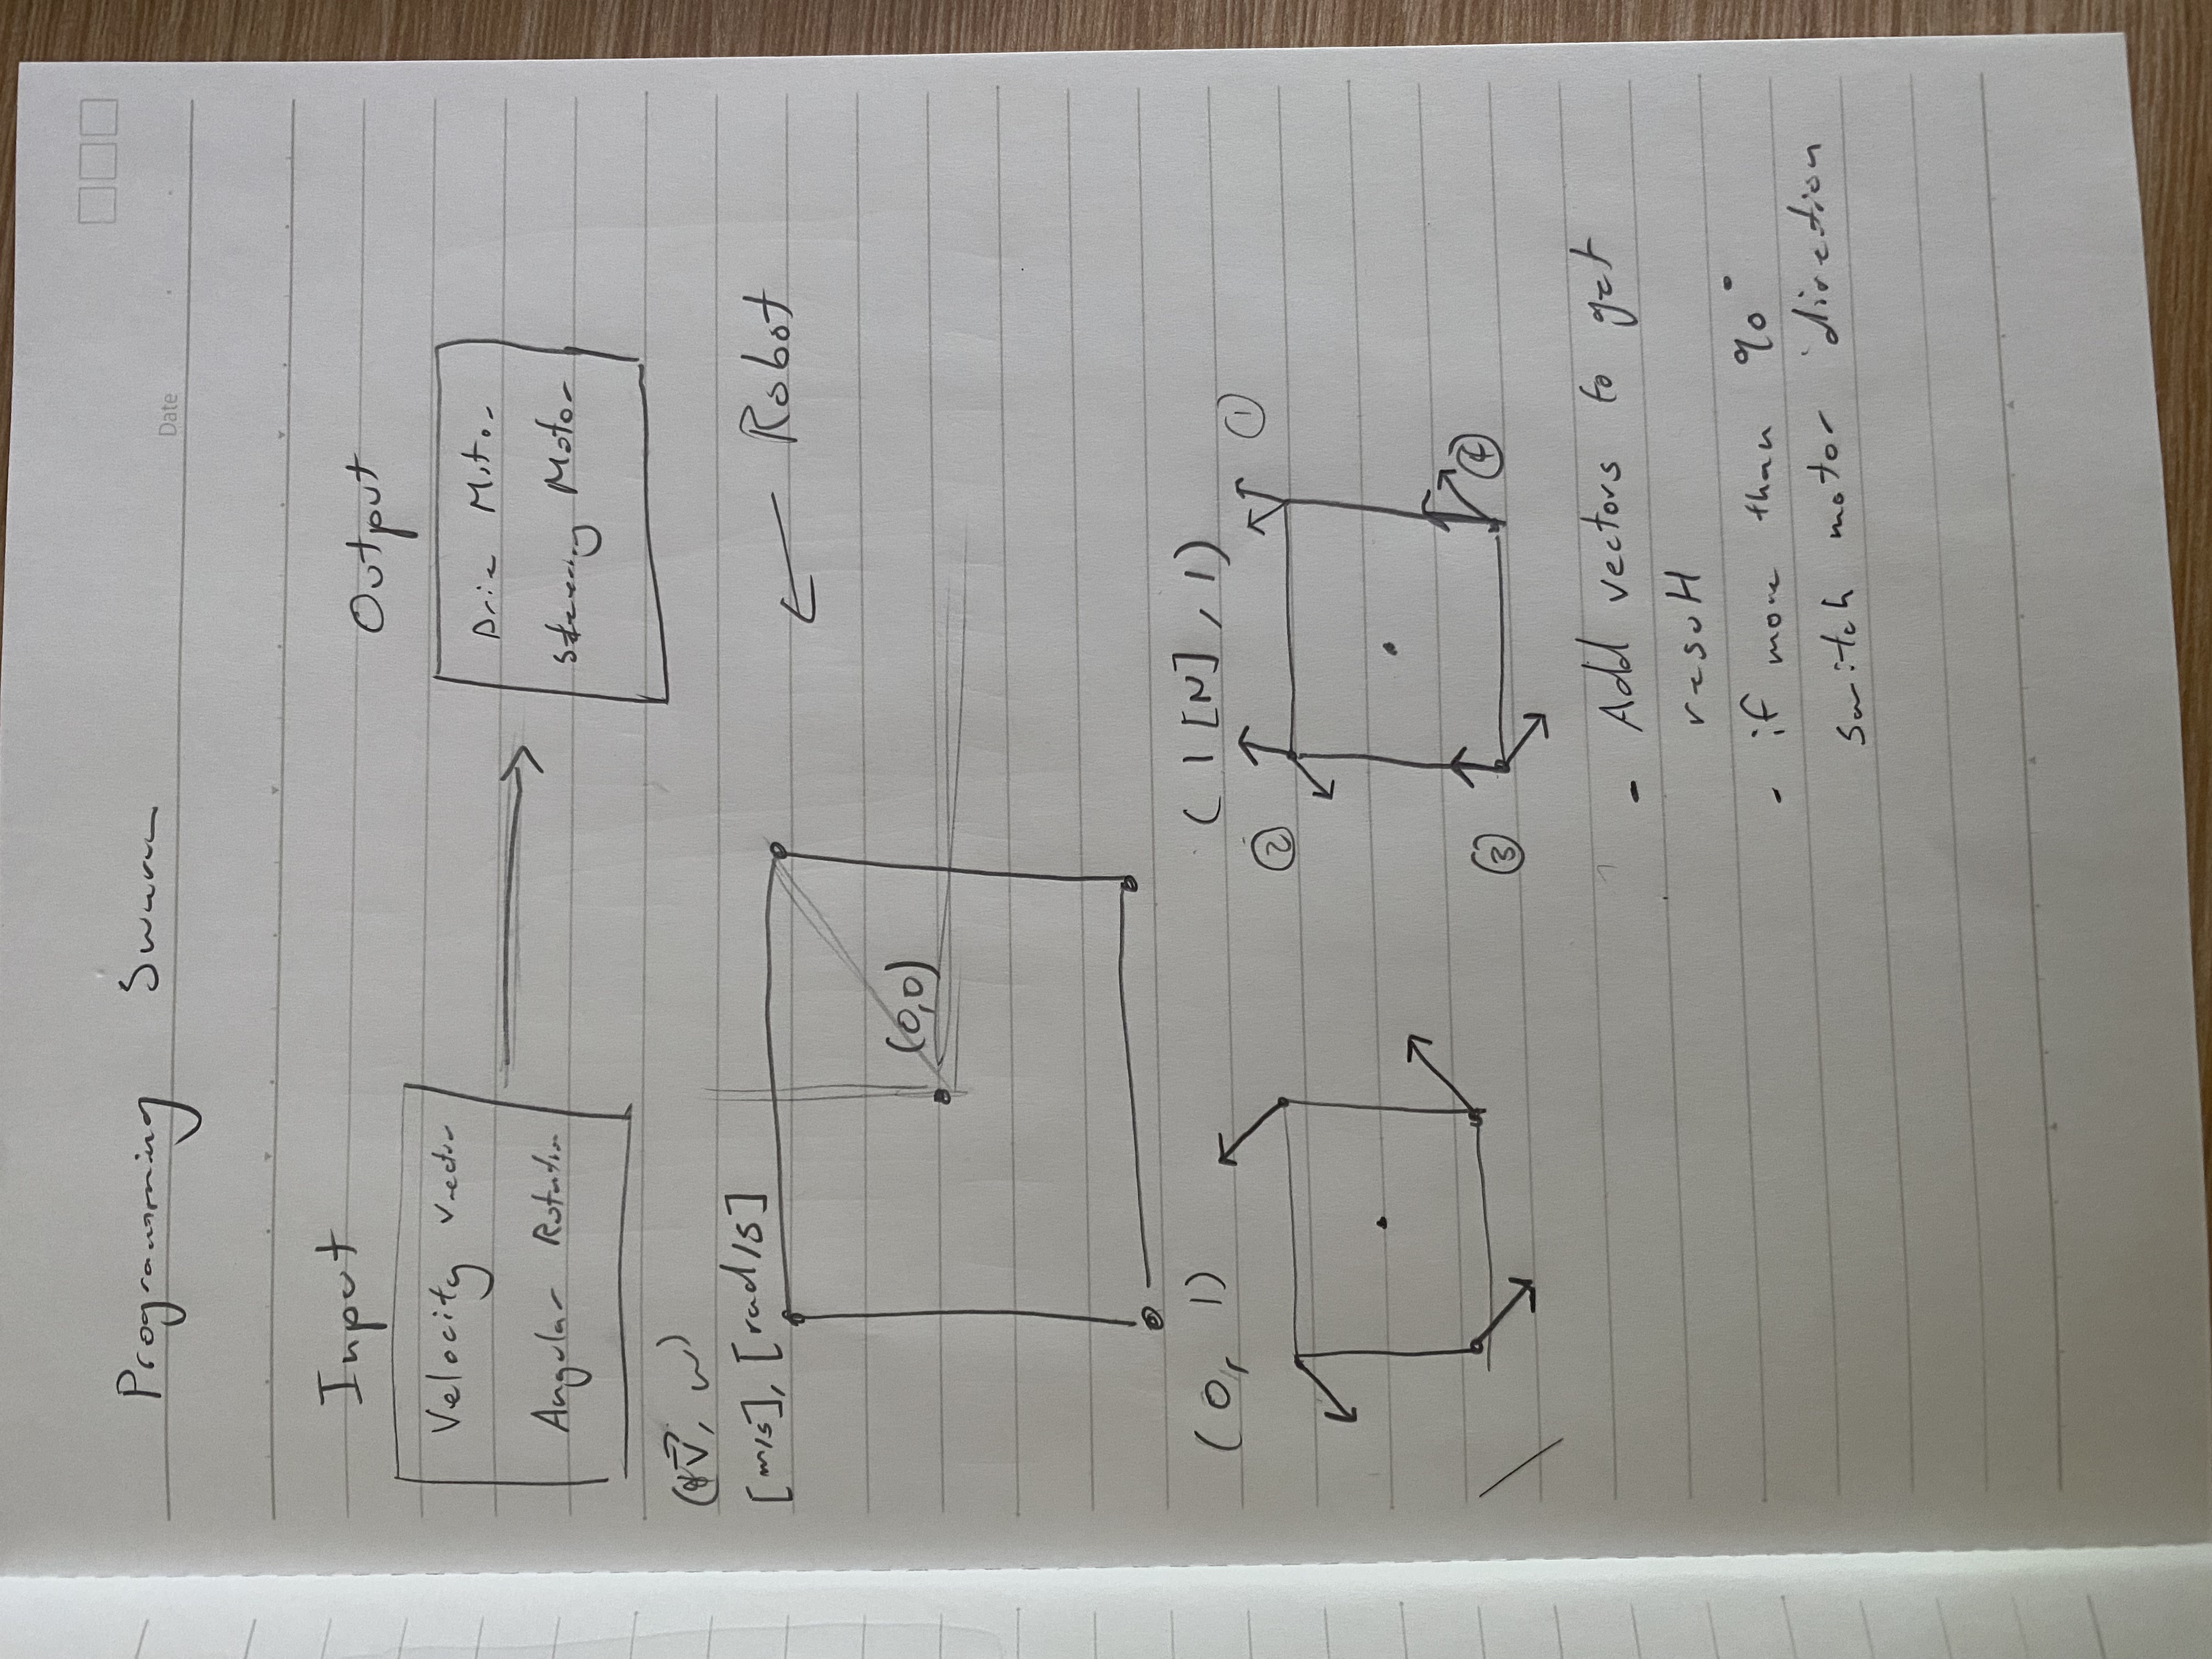 Date
Programming Swerve
Input
Output
Velocity Vector
Angular Rotation
Drive Motor
Steering Motor
(V, w)
[m/s], [rad/s]
Robot
(0,0)
(0, 1)
(1[N], 1)
②
①
③
④
- Add vectors to get
result
- if more than 90°
switch motor direction